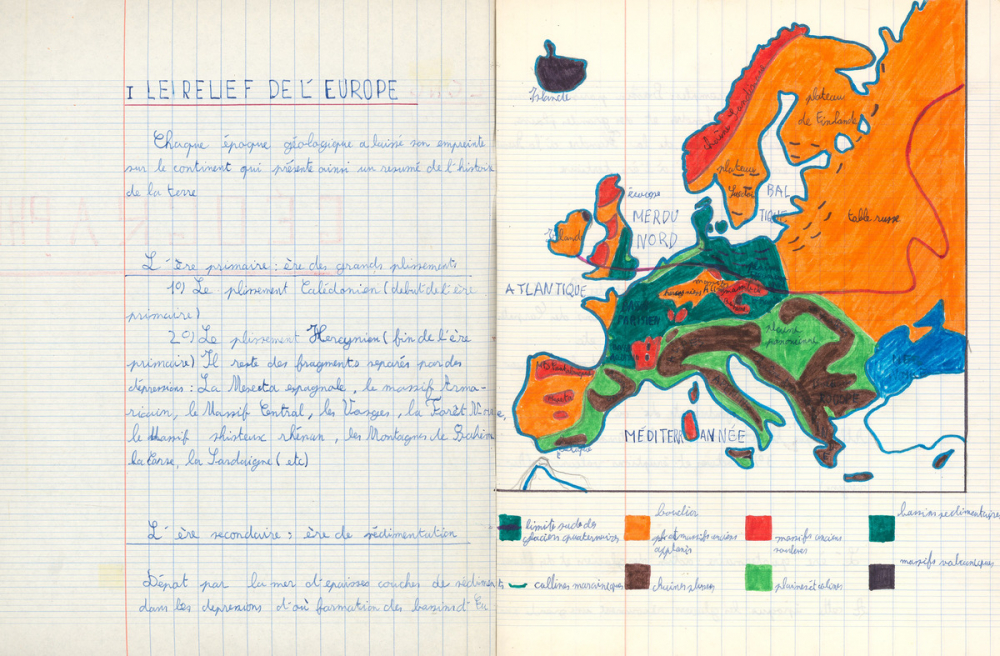 I LE RELIEF DE L'EUROPE
Chaque époque géologique a laissé son empreinte
sur le continent qui présente ainsi un resumé de l'histoire
de la terre
L'ère primaire : ère des grands plissements
1º) Le plissement Calédonien (debut de l'ère
primaire)
2º) Le plissement Hercynien (fin de l'ère
primaire) Il reste des fragments separés par des
dépressions : La Meseta espagnole, le massif Armo-
ricain, le Massif Central, les Vosges, la Forêt Noire,
le Massif shisteux rhénan, les Montagnes de Bohèm
la Corse, la Sardaigne (etc)
L'ère secondaire ; ère de sédimentation
Dépôt par la mer d'épaisses couches de sédiments
dans les depressions d'où formation des bassins d'Eu
Islande
plateau
de Finlande
plateau
écosse
MER DU
NORD
BAL
TIQUE
table russe
Irlande
ATLANTIQUE
PARISIEN
plaine
pannonienne
EUROPE
MÉDITERRANNÉE
limite sud des
glaciers quaternaires
bouclier
plat et massifs anciens
applanis
massifs anciens
bassins sedimentaires
collines morainiques
chaines plissees
plaines et colines
massifs volcaniques